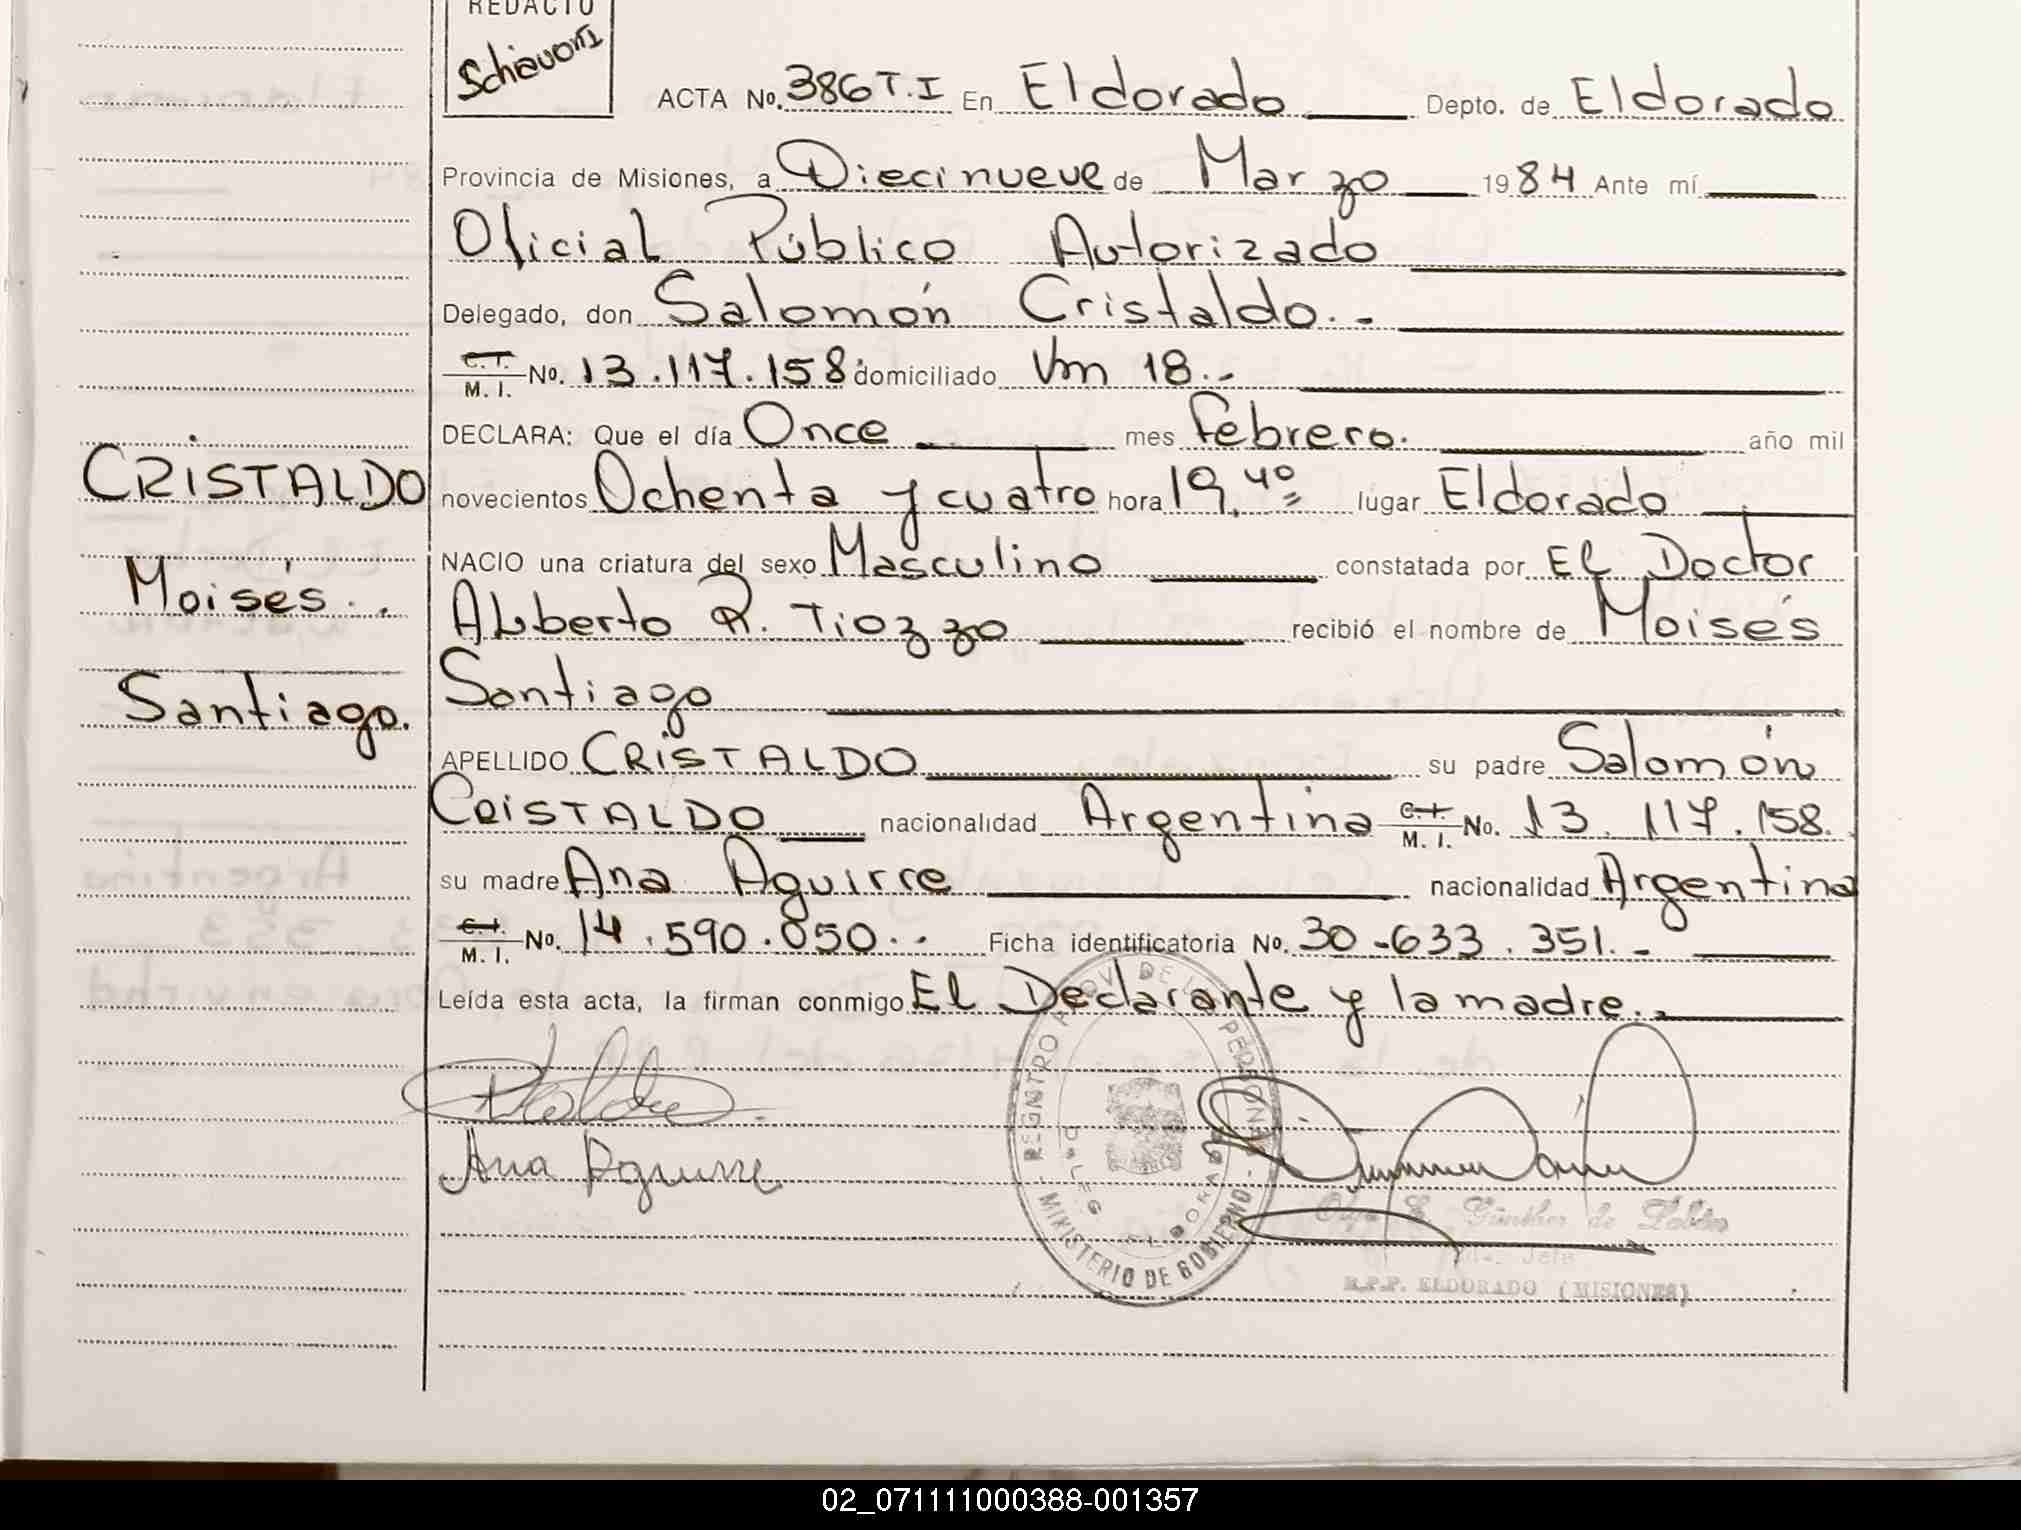 REDACTO
Schiavoni
ACTA No. 386 T.I En Eldorado Depto. de Eldorado
Provincia de Misiones, a Diecinueve de Marzo 1984 Ante mí
Oficial Público Autorizado
Delegado, don Salomón Cristaldo.-
C.I. M. I. No. 13.117.158 domiciliado Km 18.-
DECLARA: Que el día Once mes Febrero. año mil
CRISTALDO novecientos Ochenta y cuatro hora 19.40 lugar Eldorado
NACIO una criatura del sexo Masculino constatada por El Doctor
Moisés.. Alberto R. Tiozzo recibió el nombre de Moisés
Santiago. Santiago
APELLIDO CRISTALDO su padre Salomón
CRISTALDO nacionalidad Argentina C.I. M. I. No. 13.117.158.
su madre Ana Aguirre nacionalidad Argentina
C.I. M. I. No. 14.590.050.- Ficha identificatoria No. 30-633.351.-
Leída esta acta, la firman conmigo El Declarante y la madre.-
Ana Aguirre
REGISTRO PROV. DE LAS PERSONAS - MINISTERIO DE GOBIERNO -
DELEG. ELDORADO
Olga E. Günther de
Jefe
R.P.P. ELDORADO (MISIONES)
02_071111000388-001357